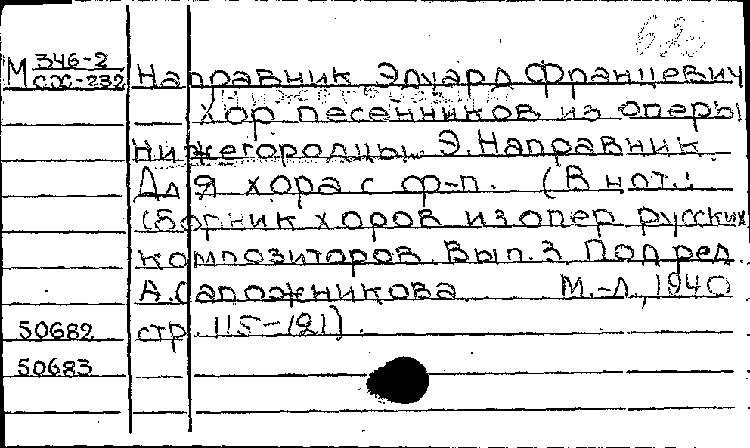 М 346-2
СХ-232 Направник Эдуард Францевич
Хор песенников из оперы
Нижегородцы. Э.Направник.
Для хора с ф-п. (В нот.:
Сборник хоров из опер русских
композиторов. Вып.3. Под ред.
А.Сапожникова М.-Л., 1940
50682 стр. 115-121).
50683